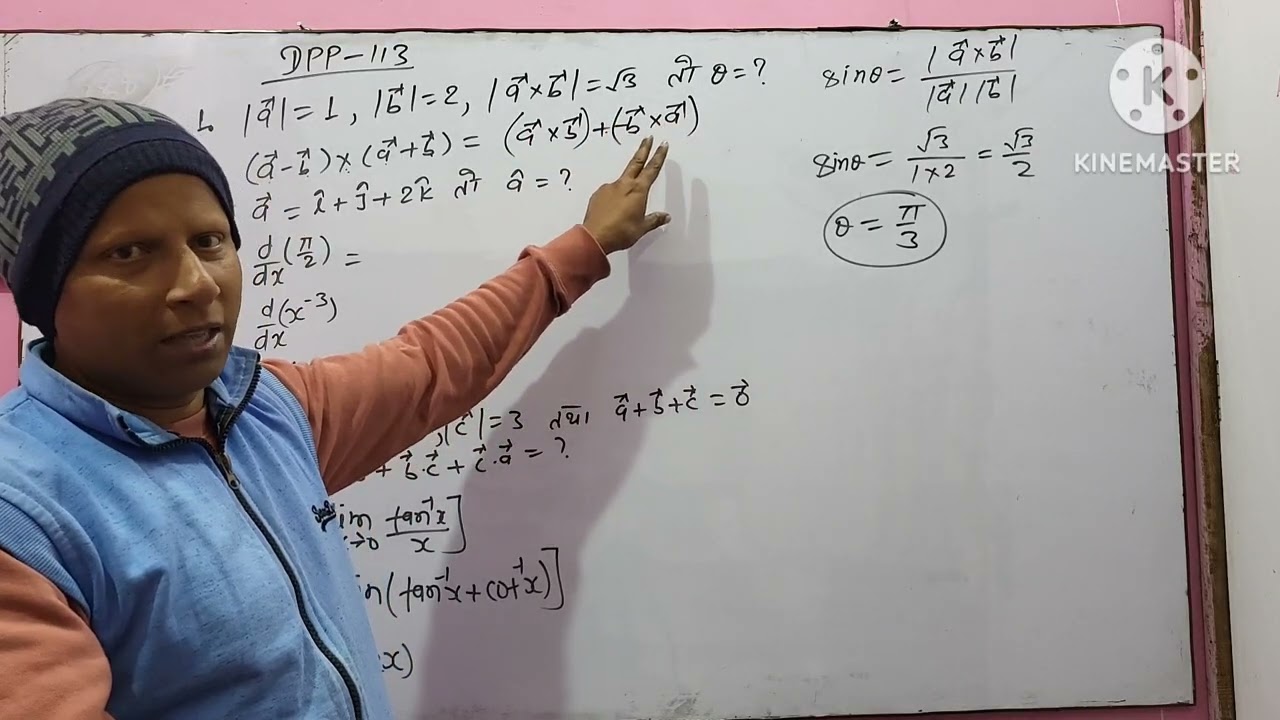 DPP-113
1. |a⃗| = 1, |b⃗| = 2, |a⃗ × b⃗| = √3 तो θ = ?
(a⃗ - b⃗) × (a⃗ + b⃗) = (a⃗ × b⃗) + (-b⃗ × a⃗)
a⃗ = î + ĵ + 2k̂ तो â = ?
d/dx (π/2) =
d/dx (x⁻³)
, |c⃗| = 3 तथा a⃗ + b⃗ + c⃗ = 0⃗
+ b⃗.c⃗ + c⃗.a⃗ = ?
im x→0 tan⁻¹x/x ]
in(tan⁻¹x + cot⁻¹x)]
x)
sinθ = |a⃗ × b⃗| / |a⃗| |b⃗|
sinθ = √3 / 1×2 = √3/2
θ = π/3
K
KINEMASTER